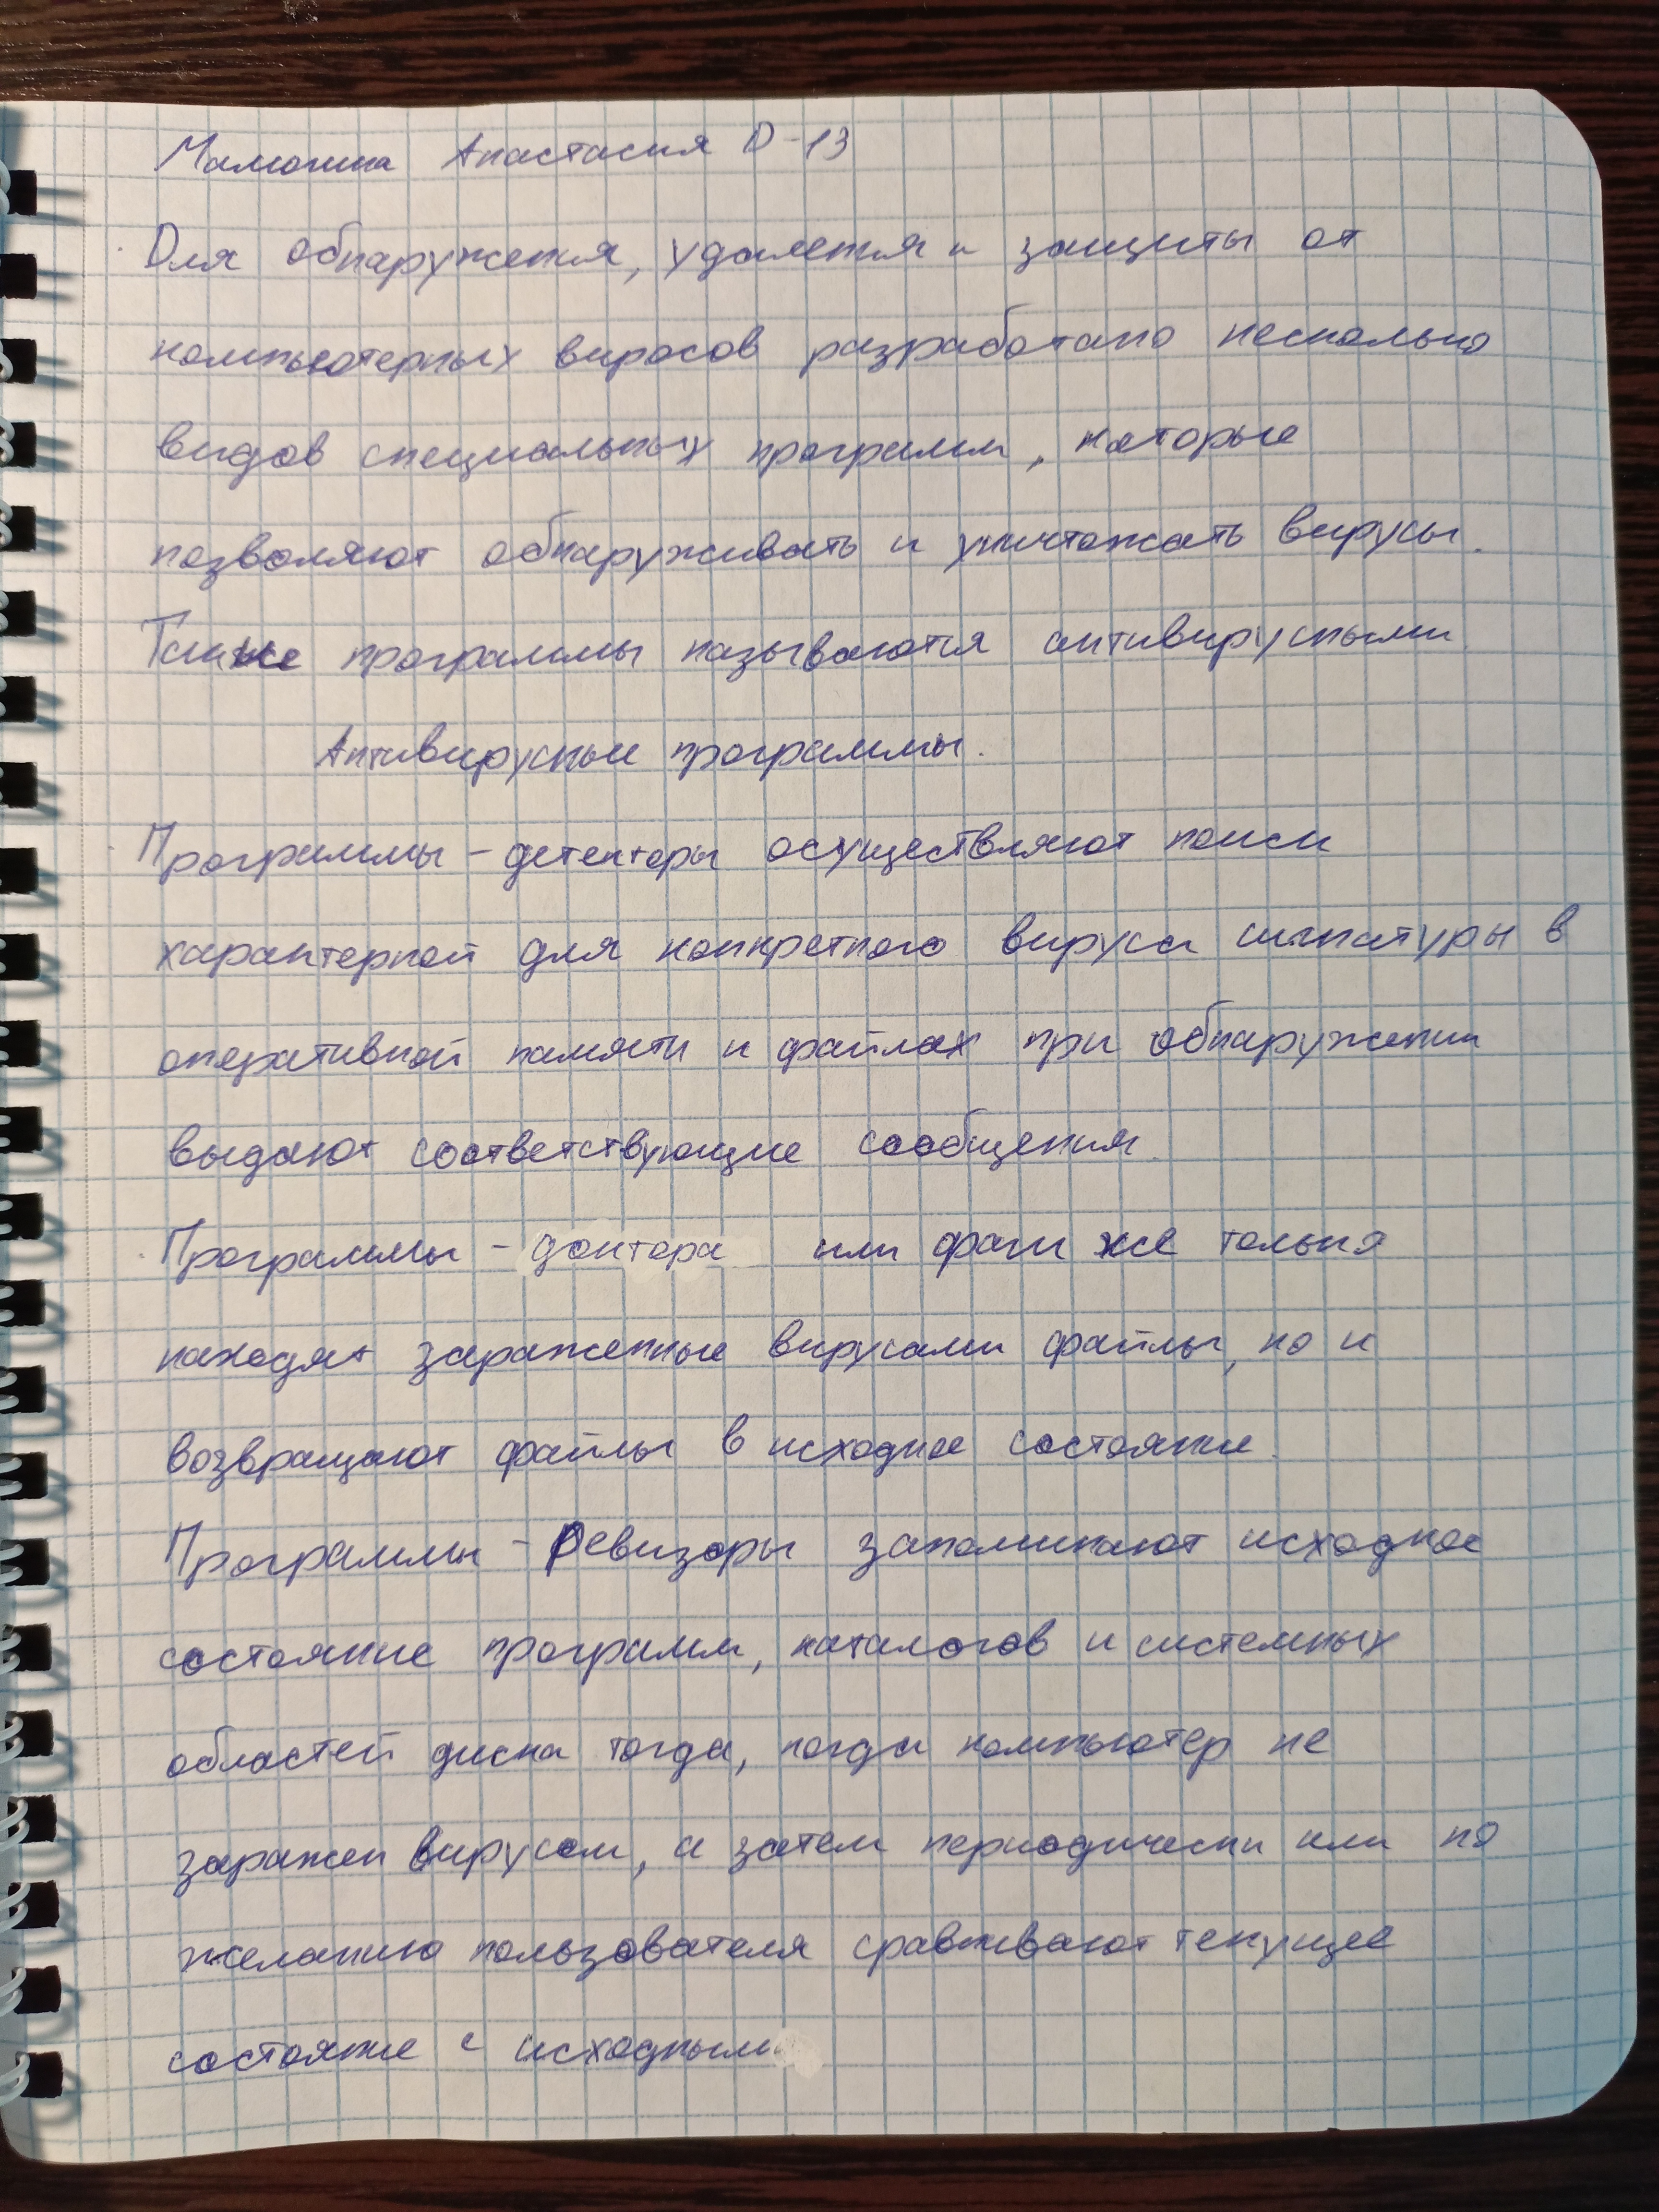 Анастасия D-13
Для обнаружения, удаления и защиты от
компьютерных вирусов разработано несколько
видов специальных программ, которые
позволяют обнаруживать и уничтожать вирусы.
Такие программы называются антивирусными
Антивирусные программы.
Программы - детекторы осуществляют поиск
характерной для конкретного вируса сигнатуры в
оперативной памяти и файлах при обнаружении
выдают соответствующие сообщения.
Программы - доктора или фаги же только
находят зараженные вирусами файлы, но и
возвращают файлы в исходное состояние.
Программы - Ревизоры запоминают исходное
состояние программ, каталогов и системных
областей диска тогда, когда компьютер не
заражен вирусом, а затем периодически или по
желанию пользователя сравнивают текущее
состояние с исходным